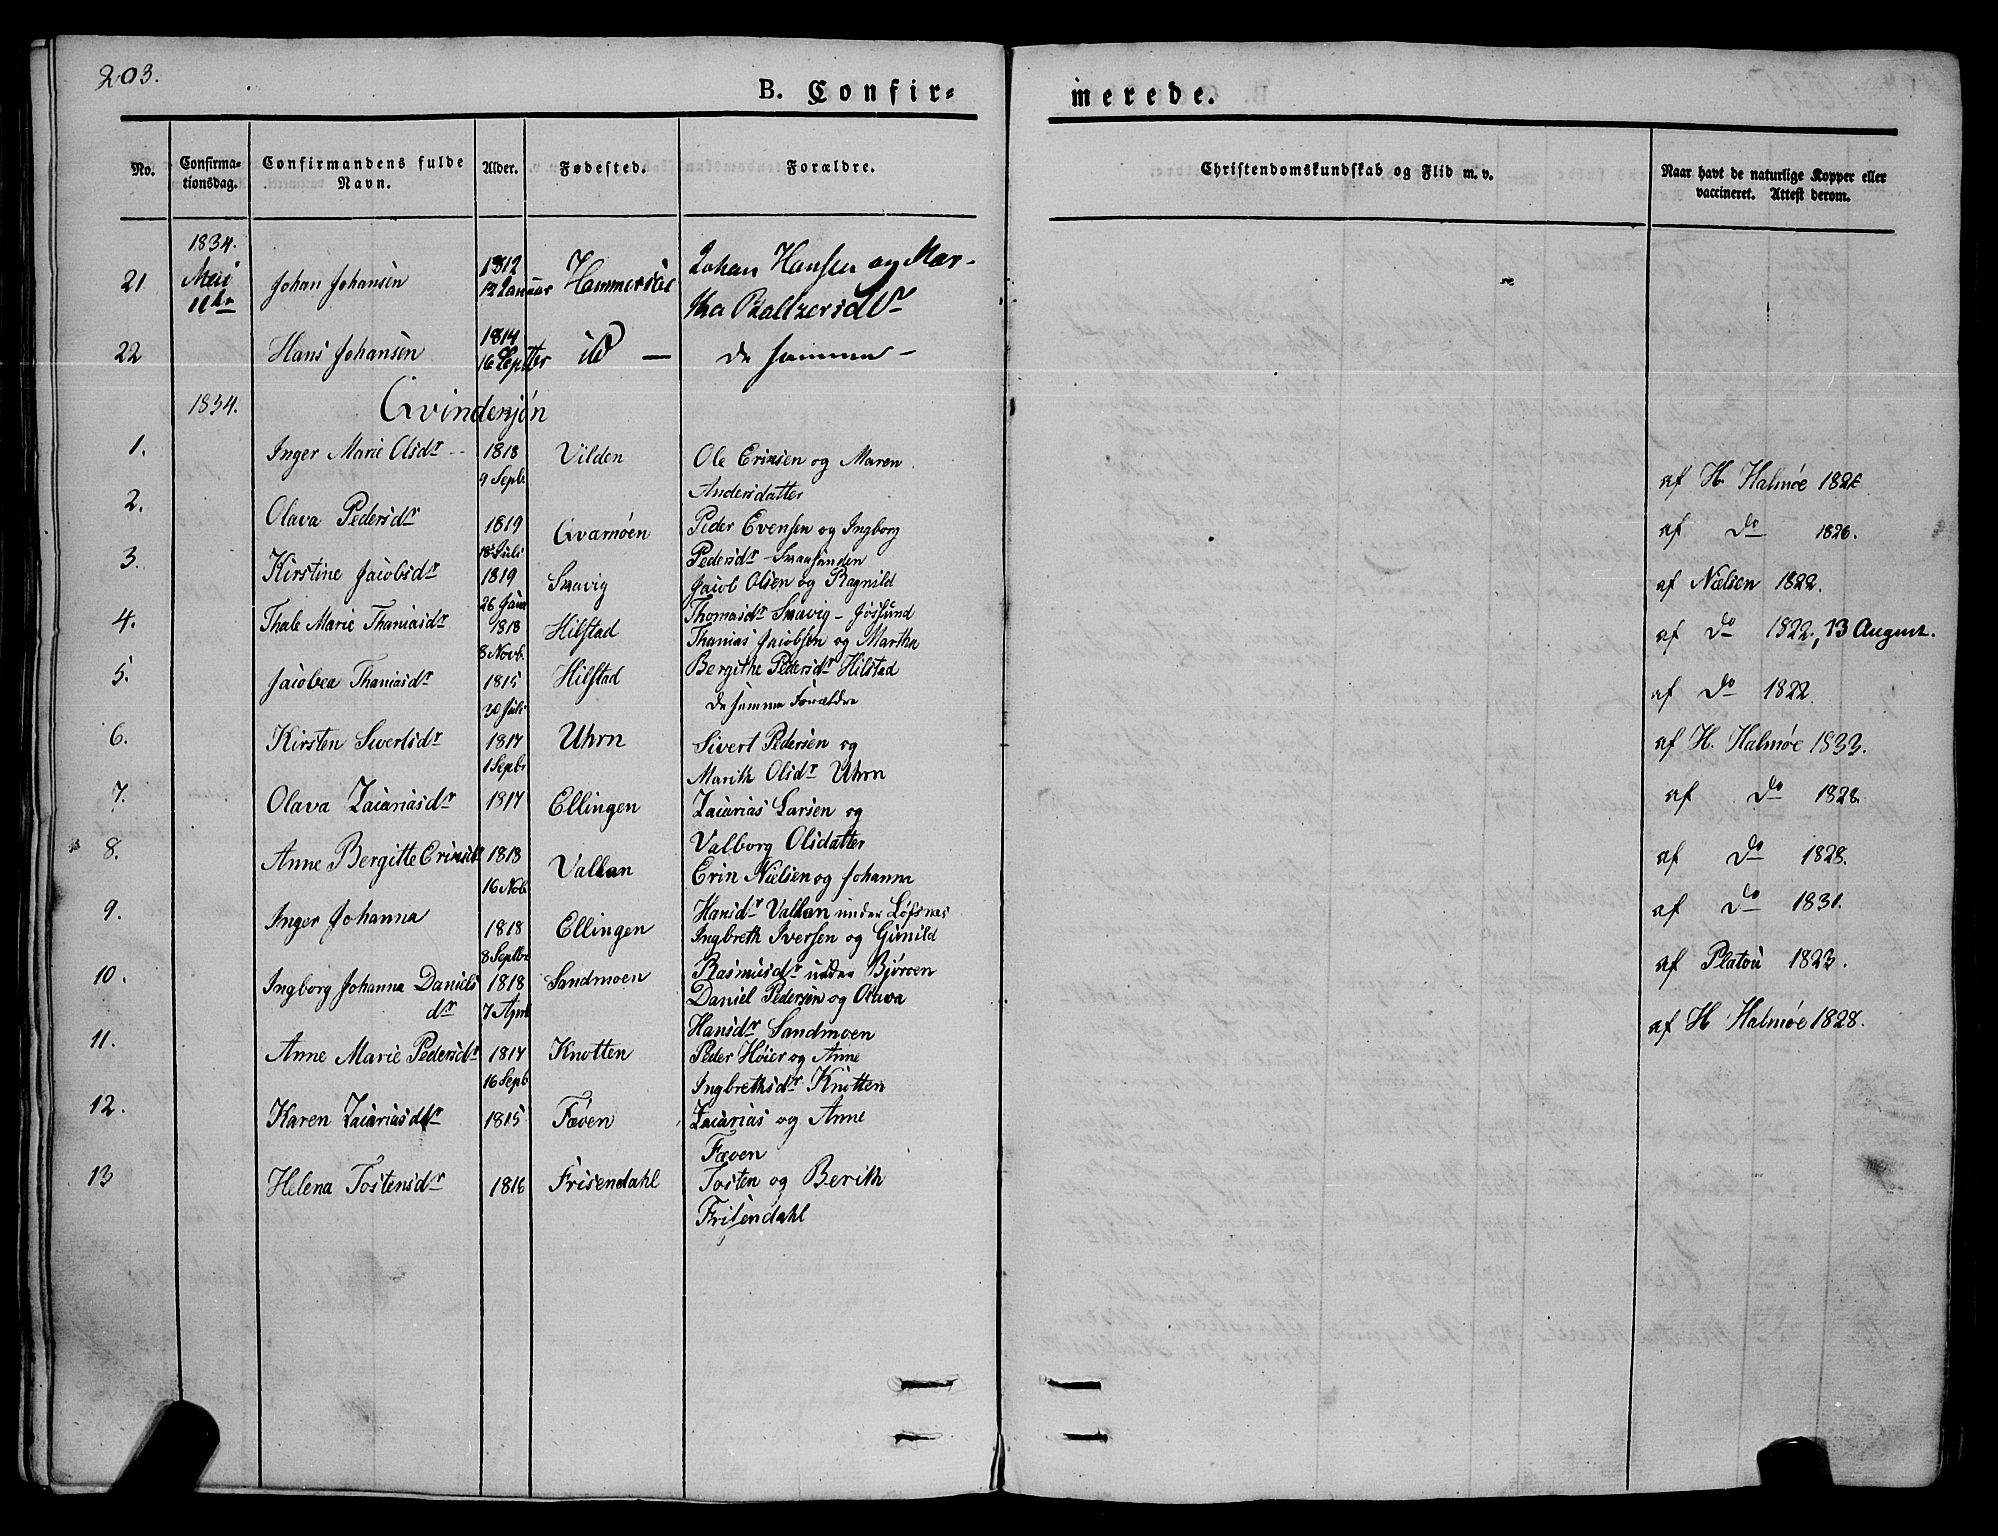 203.
B. Confir-
merede.
No.
Confirma-
tionsdag.
Confirmandens fulde
Navn.
Alder.
Fødested.
Forældre.
Christendomskundskab og Flid m. v.
Naar havt de naturlige Kopper eller
vaccineret. Attest derom.
1834.
Mai
21 Johan Johansen 1812 Johan Hansen og Mar-
12 Januar Hammersøe
tha Baltzersdtr
22 Hans Johansen 1814 id — de samme —
16 Septbr
1834. Qvindekjøn
1. Inger Marie Olsdr 1818 Vilden Ole Ericsen og Maren
9 Septb Andersdatter af H. Halmøe 1826
2. Olava Pedersdr 1819 Qvarnøen Peder Evensen og Ingborg af Do 1826.
18 Juli Pedersdr Smaasunden
3. Kirstine Jacobsdr 1819 Smavig Jacob Olsen og Ragnild af Nielsen 1822.
26 Janr Thomasdr Smavig – Jøssund
4. Thale Marie Thaniasdr 1818 Hilstad Thanias Jacobsen og Martha af Do 1822, 13 August.
8 Novb. Bergithe Pedersdr Hilstad
5. Jacobea Thaniasdr 1815 Hilstad de samme Forældre af Do 1822.
30 Juli
6. Kirsten Sivertsdr 1817 Uhrn Sivert Pedersen og af H. Halmøe 1833.
1 Septbr Marith Olsdr Uhrn
7. Olava Zacariasdr 1817 Ellingen Zacarias Larsen og af Do 1828.
Valborg Olsdatter
8. Anne Bergitte Ericsdr 1818 Vallan Eric Nielsen og Johanna af Do 1828.
16 Nob. Hansdr Vallan under Løfsnæs
9. Inger Johanna 1818 Ellingen Ingbreth Iversen og Gunild af Do 1831.
8 Septbr Rasmusdr under Bjøroen
10. Ingborg Johanna Daniels 1818 Sandmoen Daniel Pedersen og Olava af Platou 1823.
dr 7 April Hansdr Sandmoen
11. Anne Marie Pedersdr 1817 Knotten Peder Høier og Anne af H Halmøe 1828.
16 Septb Ingbrethsdr Knotten
12. Karen Zacariasdtr 1815 Fæven Zacarias og Anne
Fæven
13 Helena Tostensdr 1816 Frisendahl Tosten og Berith
Frisendahl